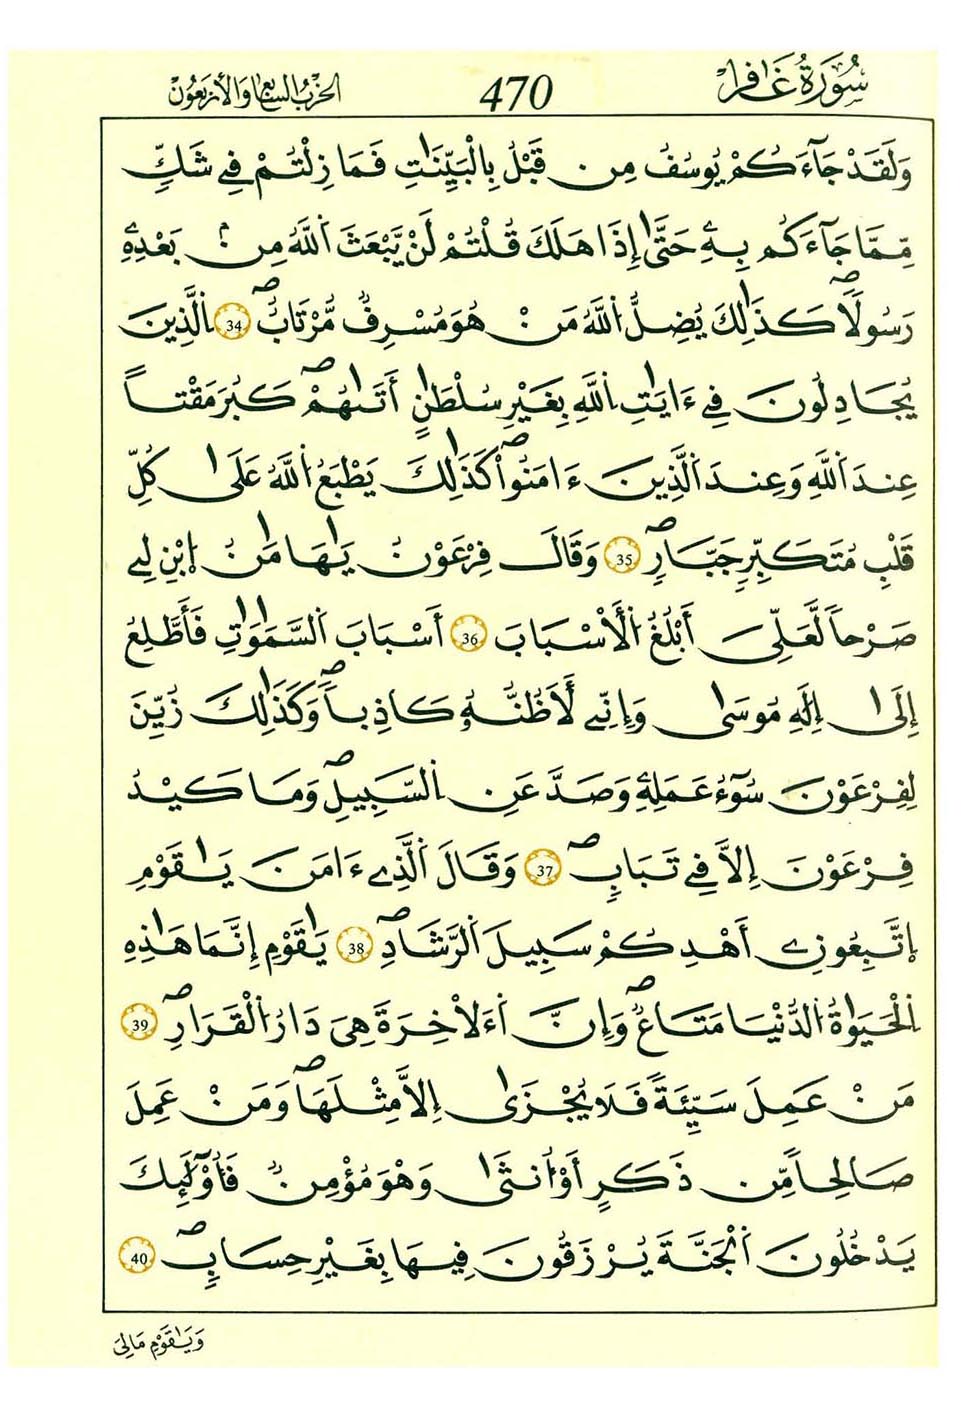 سُورَةُ غَافِر
470
الحزب السابع والأربعون
وَلَقَدْ جَآءَكُمْ يُوسُفُ مِن قَبْلُ بِالْبَيِّنَٰتِ فَمَا زِلْتُمْ فِے شَكّٖ
مِّمَّا جَآءَكُم بِهِۦ حَتَّيٰٓ إِذَا هَلَكَ قُلْتُمْ لَنْ يَّبْعَثَ اَ۬للَّهُ مِنۢ بَعْدِهِۦ
رَسُولاٗۖ كَذَٰلِكَ يُضِلُّ اُ۬للَّهُ مَنْ هُوَ مُسْرِفٞ مُّرْتَابٌۖ 34 اِ۬لذِينَ
يُجَٰدِلُونَ فِےٓ ءَايَٰتِ اِ۬للَّهِ بِغَيْرِ سُلْطَٰنٍ أَتَىٰهُمْۖ كَبُرَ مَقْتاً
عِندَ اَ۬للَّهِ وَعِندَ اَ۬لذِينَ ءَامَنُواْۖ كَذَٰلِكَ يَطْبَعُ اُ۬للَّهُ عَلَىٰ كُلِّ
قَلْبِ مُتَكَبِّرٖ جَبّ۪ارٖۖ 35 وَقَالَ فِرْعَوْنُ يَٰهَٰمَٰنُ اُ۪بْنِ لِے
صَرْحاٗ لَّعَلِّيَ أَبْلُغُ اُ۬لْأَسْبَٰبَ 36 أَسْبَٰبَ اَ۬لسَّمَٰوَٰتِ فَأَطَّلِعُ
إِلَىٰٓ إِلَٰهِ مُوسَىٰ وَإِنِّے لَأَظُنُّهُۥ كَٰذِباٗۖ وَكَذَٰلِكَ زُيِّنَ
لِفِرْعَوْنَ سُوٓءُ عَمَلِهِۦ وَصَدَّ عَنِ اِ۬لسَّبِيلِۖ وَمَا كَيْدُ
فِرْعَوْنَ إِلاَّ فِے تَبَابٖۖ 37 وَقَالَ اَ۬لذِےٓ ءَامَنَ يَٰقَوْمِ
اِ۪تَّبِعُونِۦٓ أَهْدِكُمْ سَبِيلَ اَ۬لرَّشَادِۖ 38 يَٰقَوْمِ إِنَّمَا هَٰذِهِ
اِ۬لْحَيَوٰةُ اُ۬لدُّنْيَا مَتَٰعٞۖ وَإِنَّ اَ۬ءَلَاخِرَةَ هِيَ دَارُ اُ۬لْقَرَارِۖ 39
مَنْ عَمِلَ سَيِّئَةٗ فَلَا يُجْزَىٰٓ إِلاَّ مِثْلَهَاۖ وَمَنْ عَمِلَ
صَٰلِحاٗ مِّن ذَكَرٍ أَوْ اُنثَىٰ وَهْوَ مُؤْمِنٞ فَأُوْلَٰٓئِكَ
يَدْخُلُونَ اَ۬لْجَنَّةَ يُرْزَقُونَ فِيهَا بِغَيْرِ حِسَابٖۖ 40
وَيَٰقَوْمِ مَالِيَ